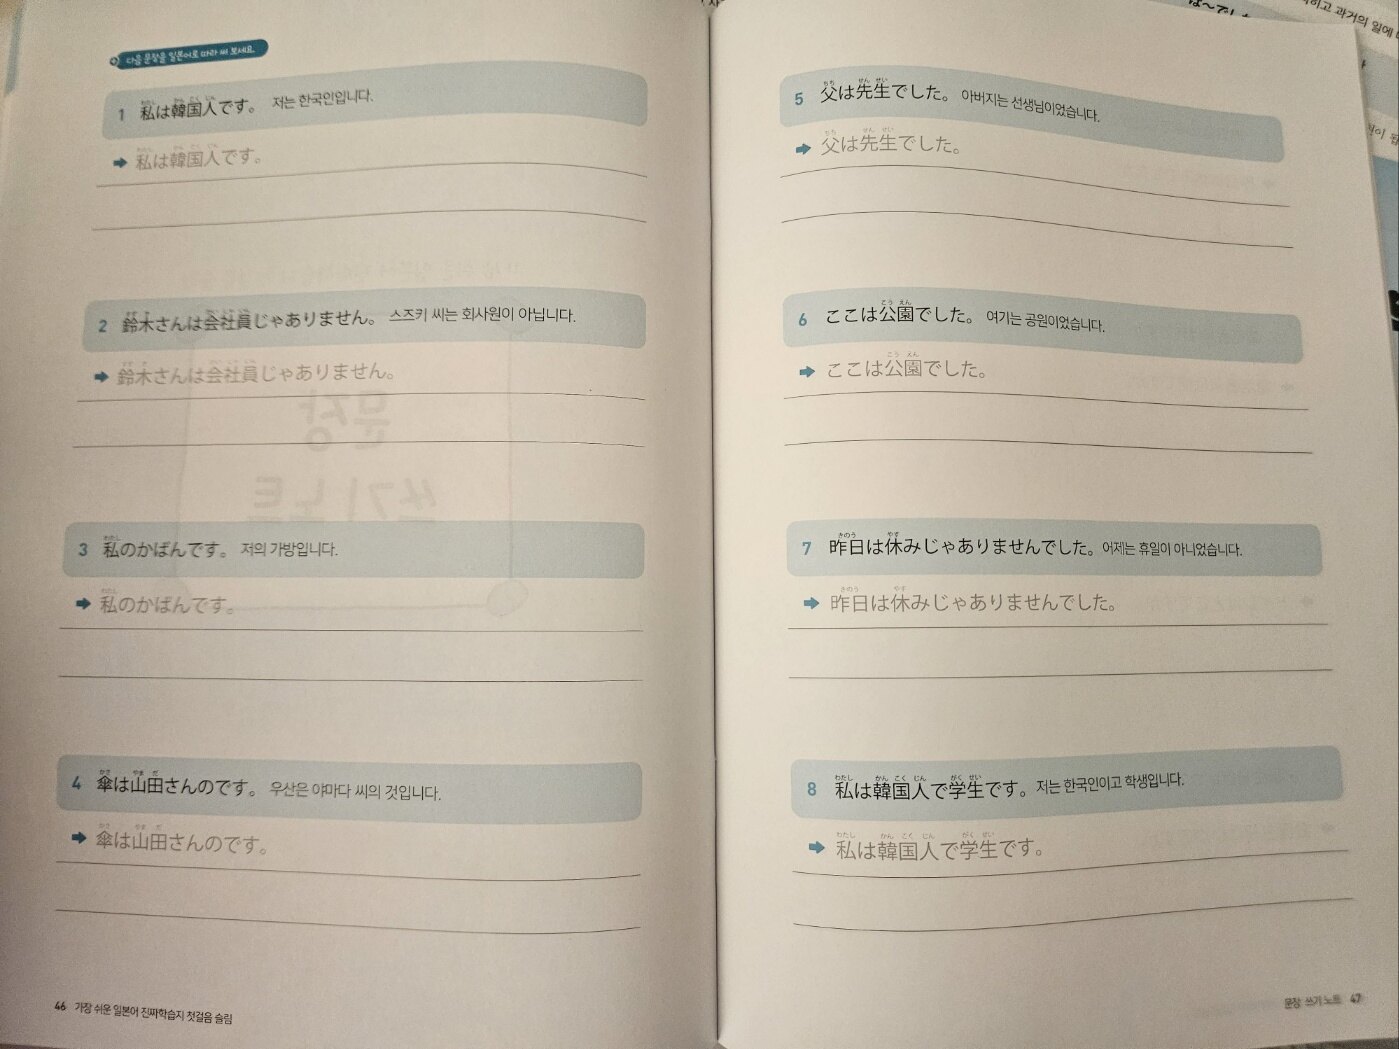 다음 문장을 일본어로 따라 써 보세요.
1 私は韓国人です。 저는 한국인입니다.
➡ 私は韓国人です。
2 鈴木さんは会社員じゃありません。 스즈키 씨는 회사원이 아닙니다.
➡ 鈴木さんは会社員じゃありません。
문장
쓰기 노트
3 私のかばんです。 저의 가방입니다.
➡ 私のかばんです。
4 傘は山田さんのです。 우산은 야마다 씨의 것입니다.
➡ 傘は山田さんのです。
46 가장 쉬운 일본어 진짜학습지 첫걸음 슬림
5 父は先生でした。 아버지는 선생님이었습니다.
➡ 父は先生でした。
6 ここは公園でした。 여기는 공원이었습니다.
➡ ここは公園でした。
7 昨日は休みじゃありませんでした。 어제는 휴일이 아니었습니다.
➡ 昨日は休みじゃありませんでした。
8 私は韓国人で学生です。 저는 한국인이고 학생입니다.
➡ 私は韓国人で学生です。
문장 쓰기 노트 47